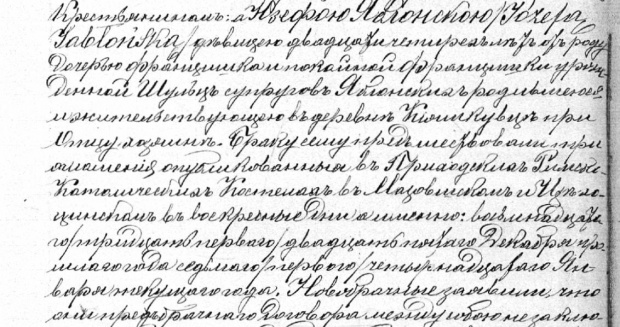 Крестьянинамъ: а Юзефою Яблонскою /Józefa
Jabłońska/ дѣвицею двадцати четырехъ лѣтъ отъ роду
дочерью Францишка и покойной Францишки урож-
денной Шульцъ супруговъ Яблонскихъ родившеюся
и жительствующею въ деревнѣ при
Отцу хозяинѣ. Браку сему предшествовали три
оглашенія опубликованныя въ Приходскихъ Римско-
Католическихъ Костелахъ въ Мазовшскомъ и Цѣхо-
цинскомъ въ воскресные дни а именно: восемнадцата-
го /тридцать перваго/ двадцать пятаго Декабря про-
шлаго года седьмаго /перваго/ четырнадцатаго Ян-
варя текущаго года. Новобрачные заявили, что
они предбрачнаго договора между собою не заклю-